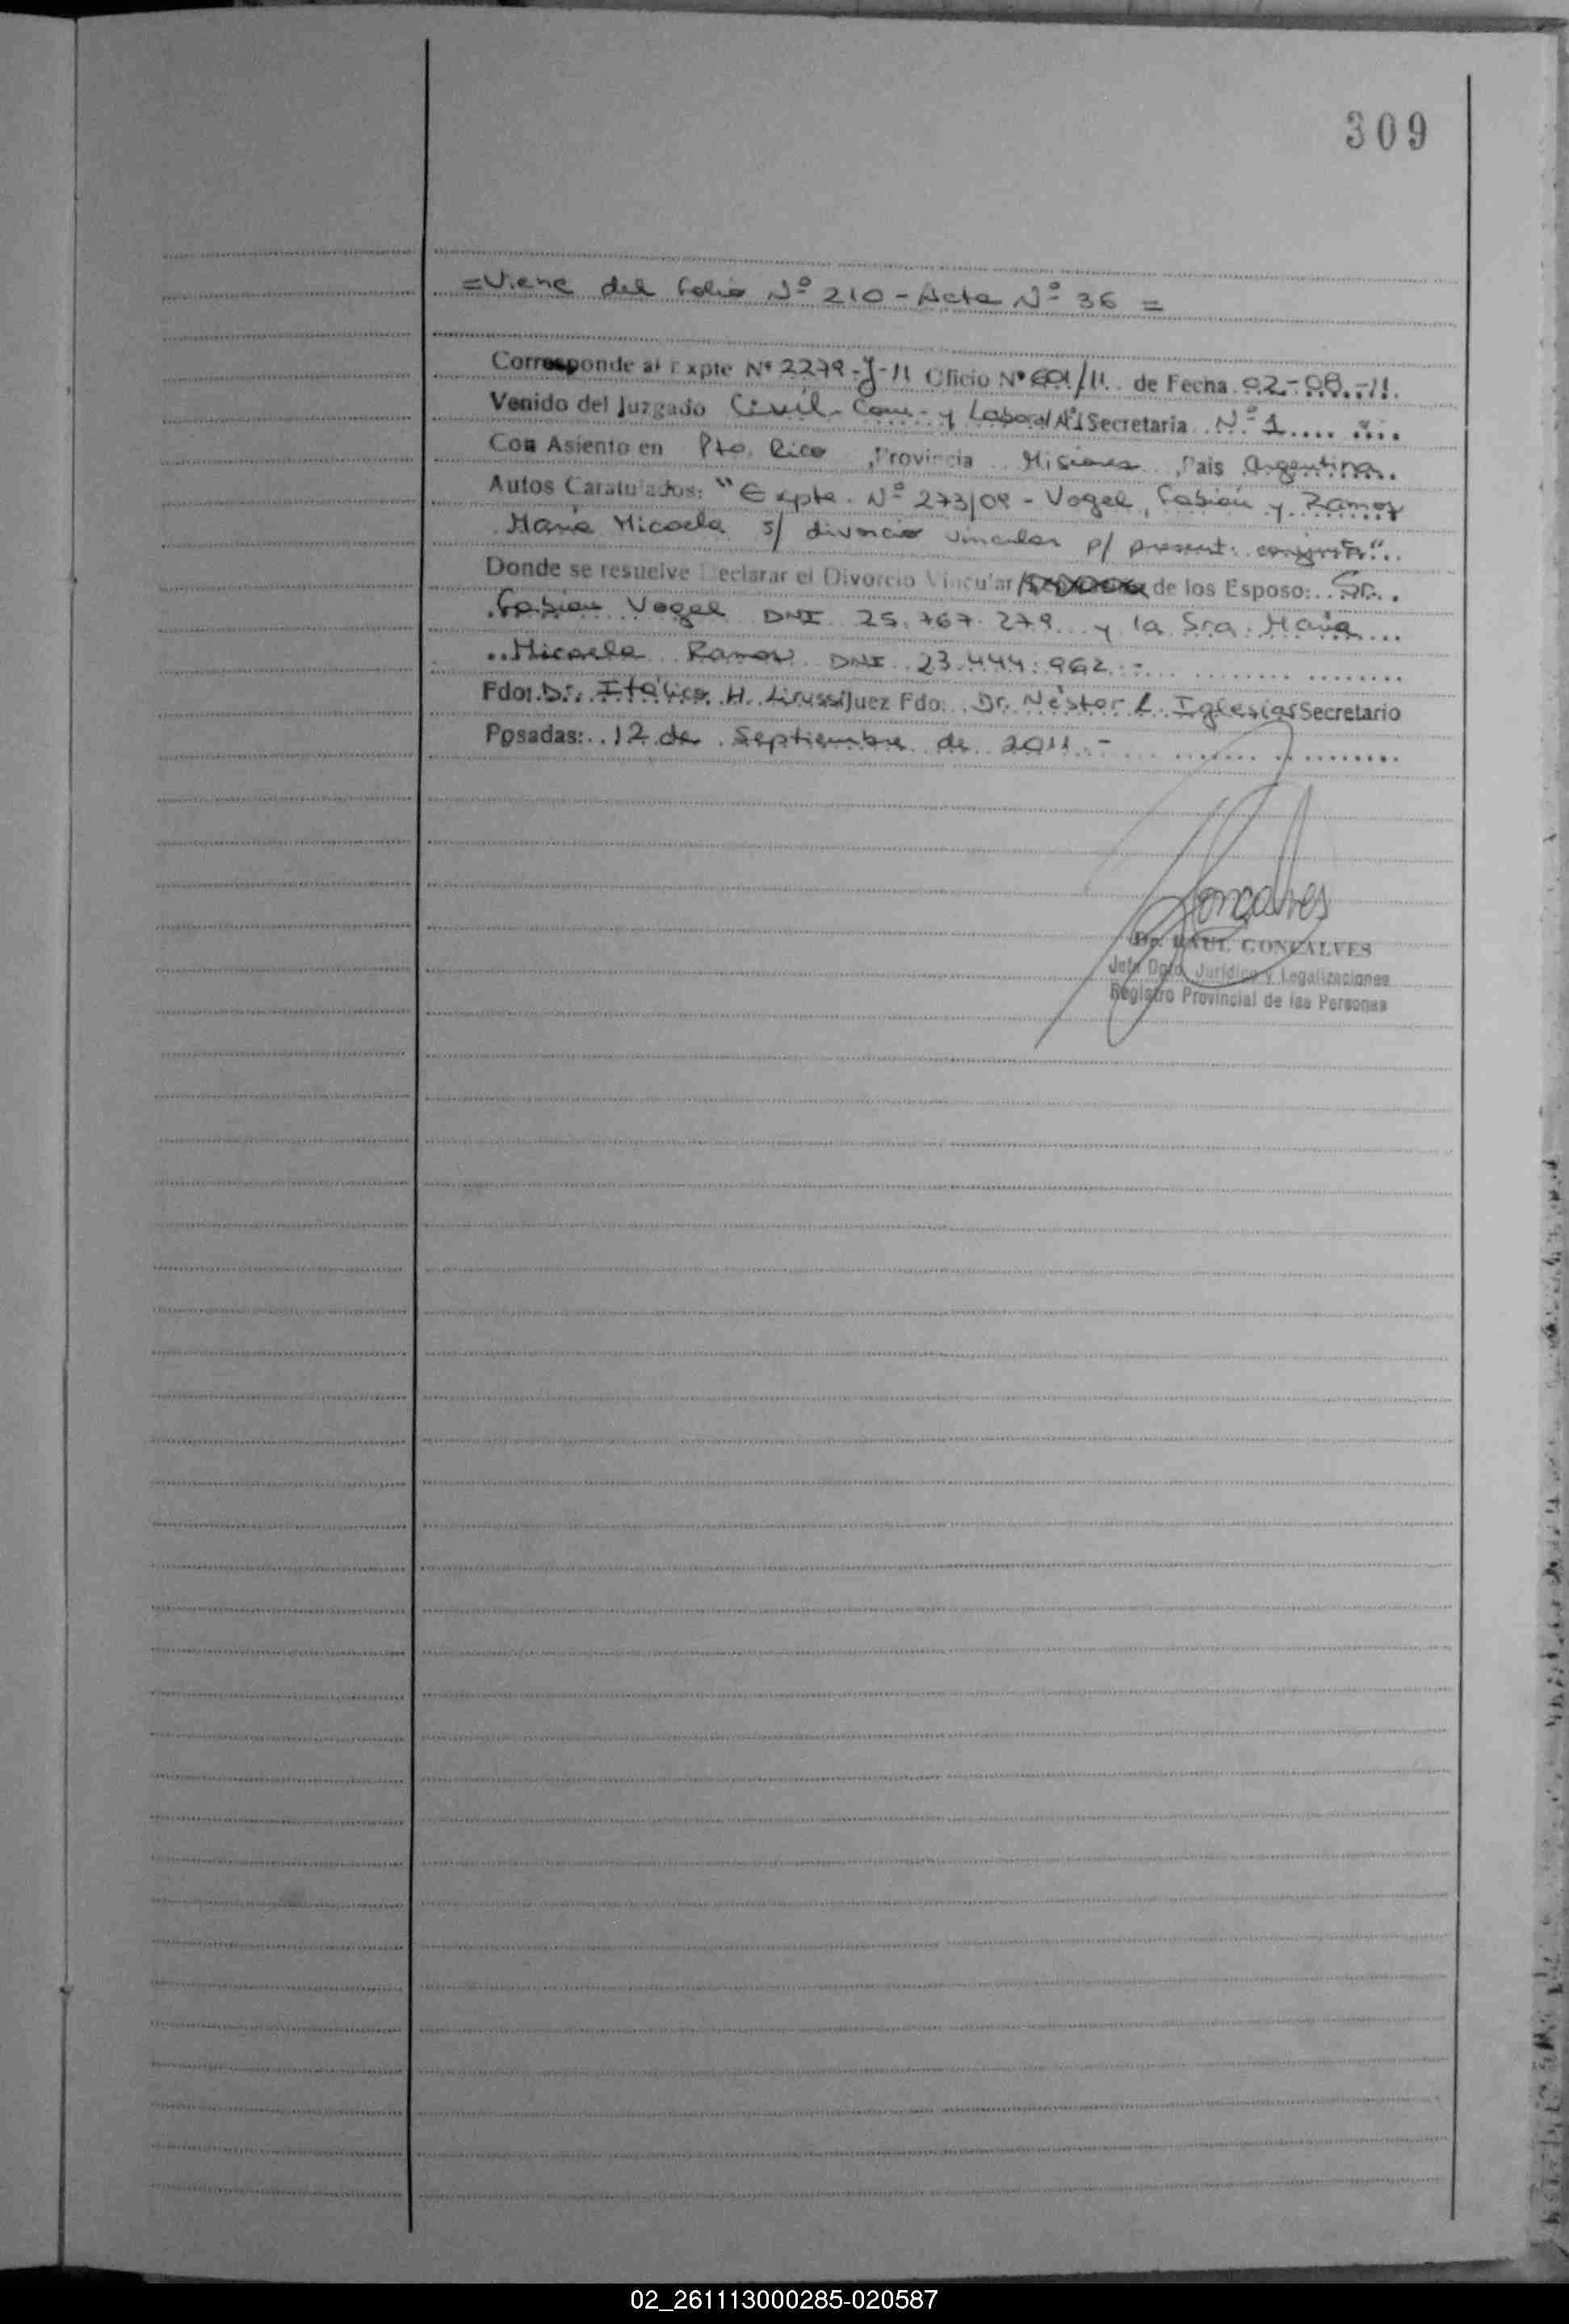 309
=Viene del folio Nº 210 - Acta Nº 36 =
Corresponde al Expte Nº 2279-J-11 Oficio Nº 601/11 de Fecha 02-08-11.
Venido del Juzgado Civil - Com - y Laboral Nº1 Secretaria Nº 1
Con Asiento en Pto. Rico, Provincia Misiones, Pais Argentina.
Autos Caratulados: "Expte. Nº 273/09 - Vogel, Fabián y Ramos
María Micaela s/ divorcio vincular p/ present. conjunta"
Donde se resuelve Declarar el Divorcio Vincular/ de los Esposo: Sr.
Fabian Vogel DNI 25.767.279 y la Sra. María
Micaela Ramos DNI 23.444.962.-
Fdo: Dr. Itálico H. Juez Fdo: Dr. Néstor L. Iglesias Secretario
Posadas: 12 de Septiembre de 2011.-
Goncalves
Dr. RAUL GONCALVES
Jefe Dpto. Jurídico y Legalizaciones
Registro Provincial de las Personas
02_261113000285-020587